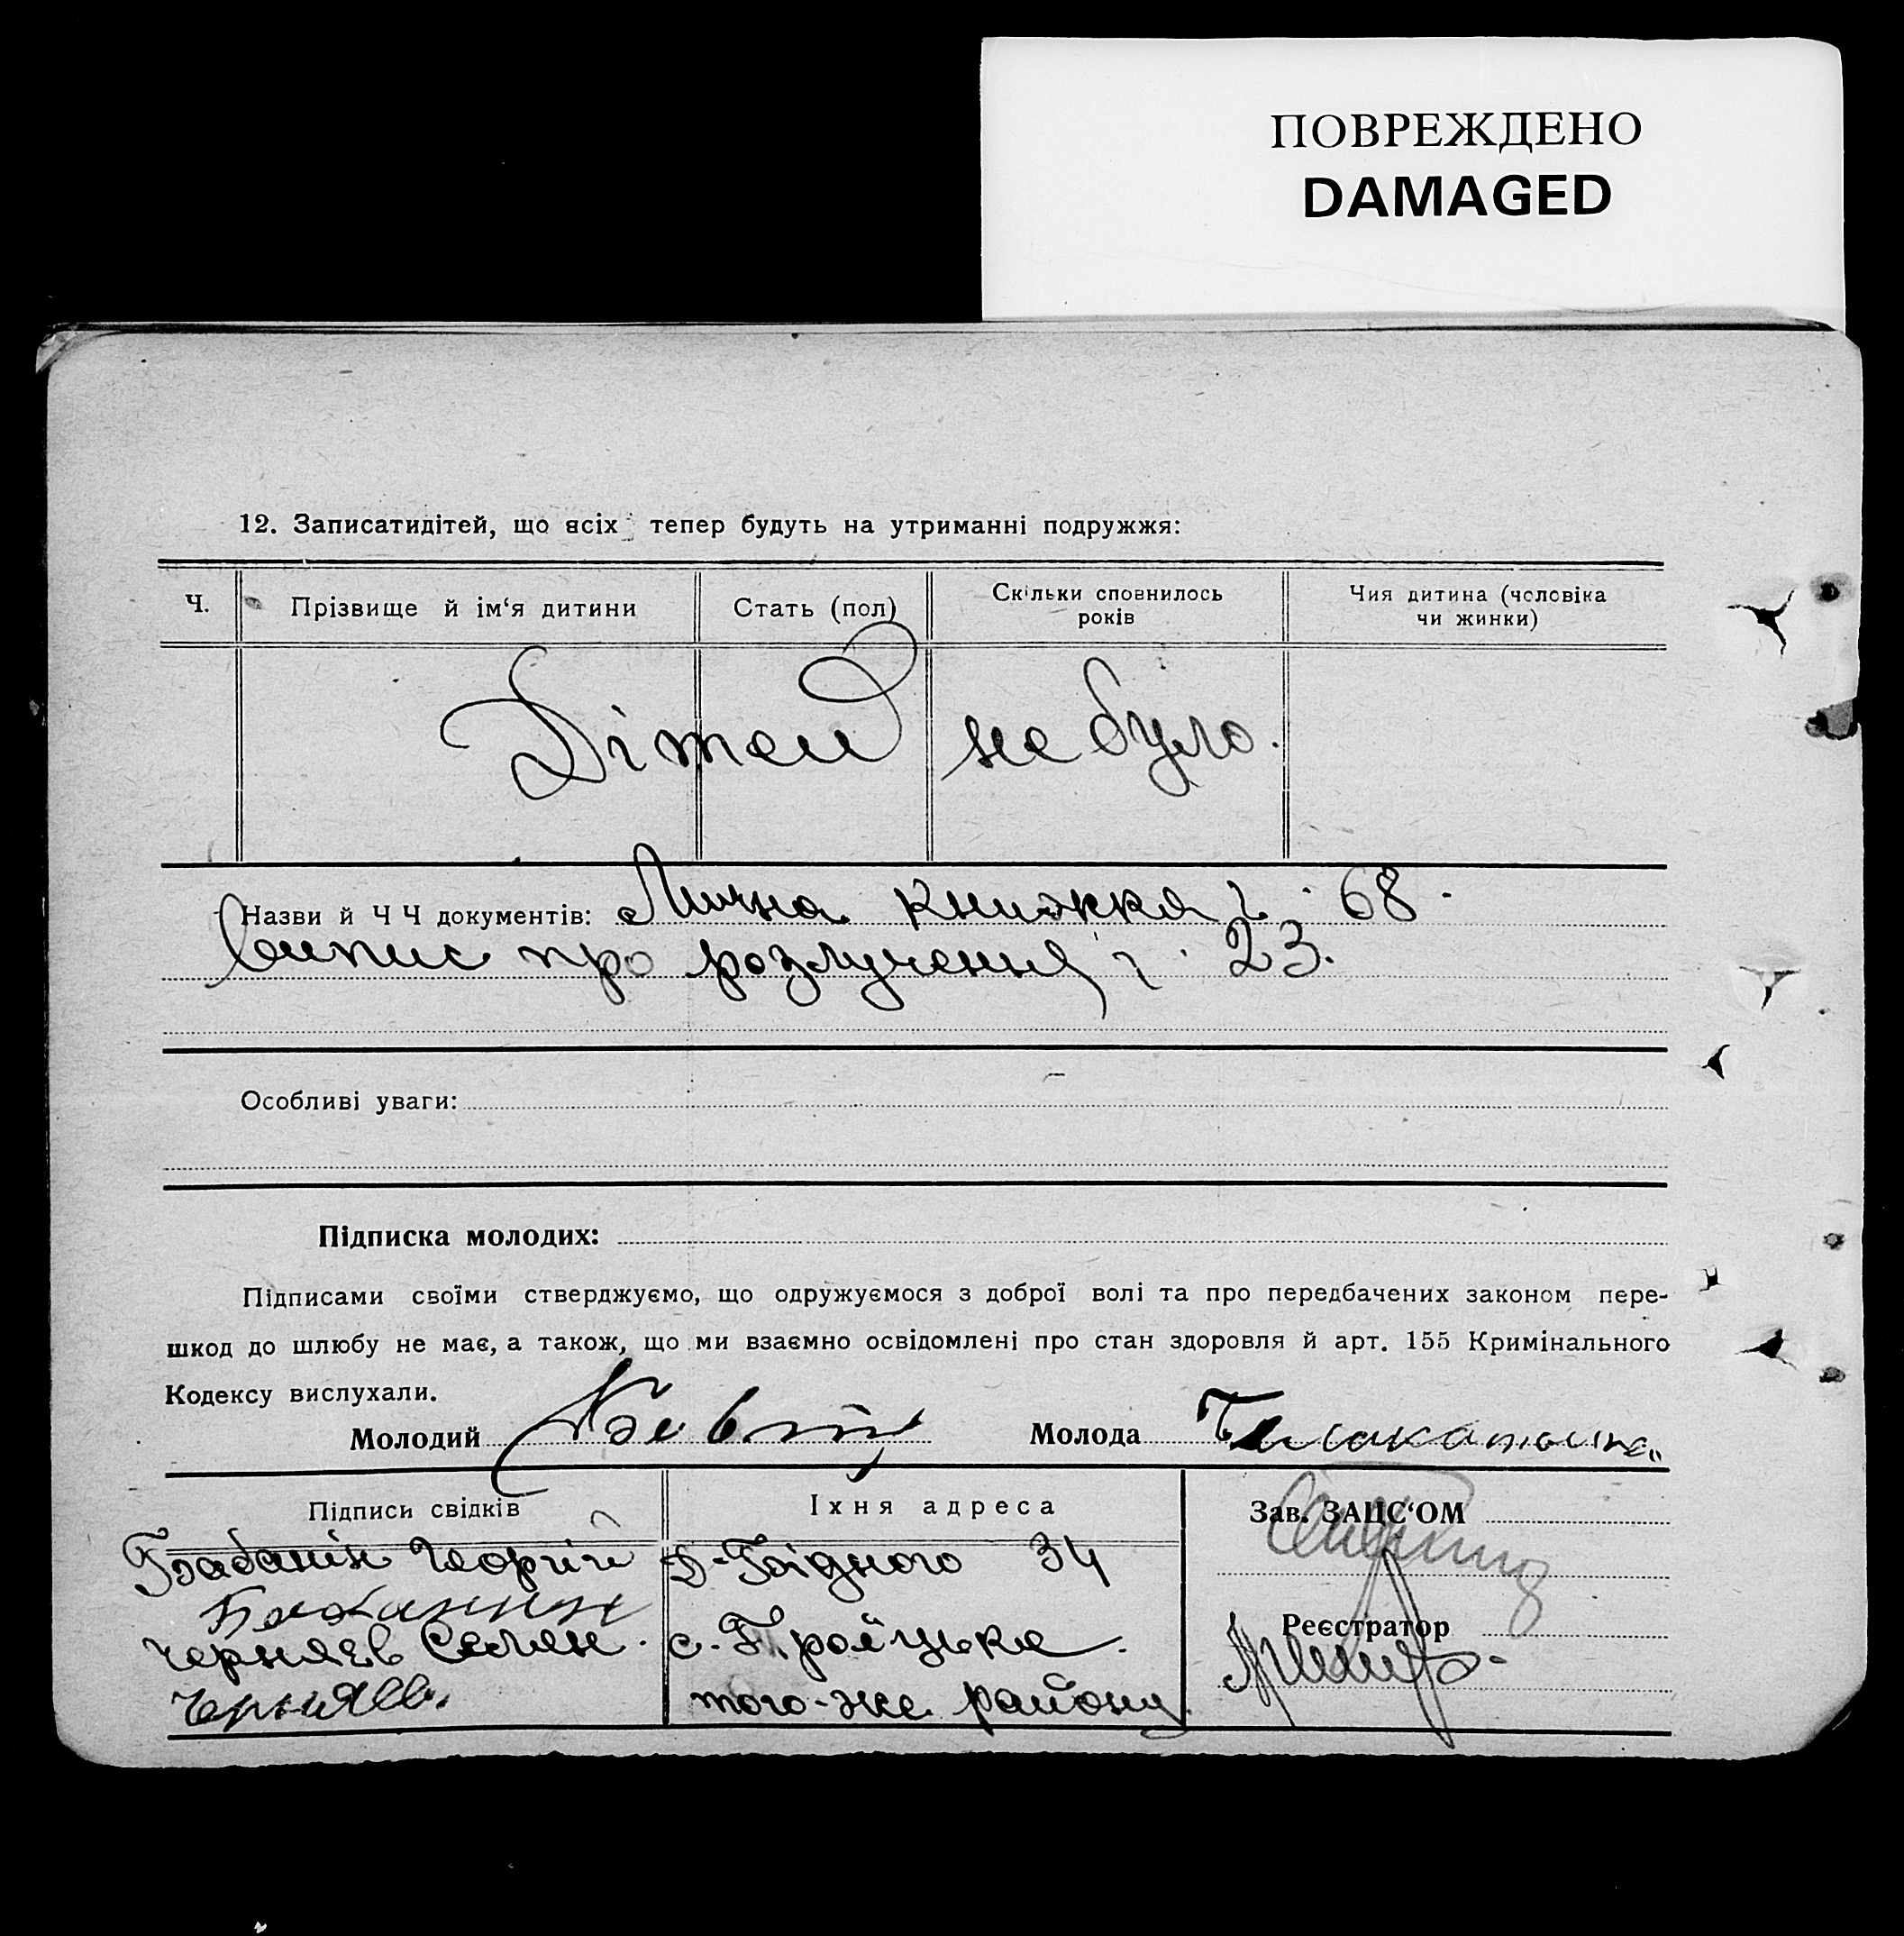 ПОВРЕЖДЕНО
DAMAGED
12. Записатидітей, що всіх тепер будуть на утриманні подружжя:
Ч.
Прізвище й ім‘я дитини
Стать (пол)
Скільки сповнилось
років
Чия дитина (чоловіка
чи жинки)
Дітей не було.
Назви й Ч Ч документів: Лична книжка ч. 68.
випис про розлучення ч. 23.
Особливі уваги:
Підписка молодих:
Підписами своїми стверджуємо, що одружуємося з доброї волі та про передбачених законом пере-
шкод до шлюбу не має, а також, що ми взаємно освідомлені про стан здоровля й арт. 155 Кримінального
Кодексу вислухали.
Молодий
Молода
Підписи свідків
Їхня адреса
Зав. ЗАЦС‘ОМ
Бабанін Георгій
Д-Бідного 34
Бабанин
Черняєв Семен.
с. Троїцьке.
Реєстратор
Черняев.
того-же району.